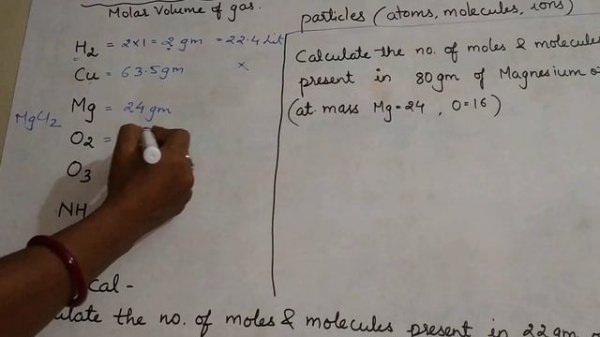 Molar Volume of gas.
H2 = 2x1 = 2 gm = 22.4 lit
Cu = 63.5gm x
Mg = 24gm
MgCl2
O2 =
O3
NH
cal -
ulate the no. of moles & molecules present in 22gm
particles (atoms, molecules, ions)
Calculate the no. of moles & molecules
present in 80gm of Magnesium o
(at. mass Mg=24 , O=16)